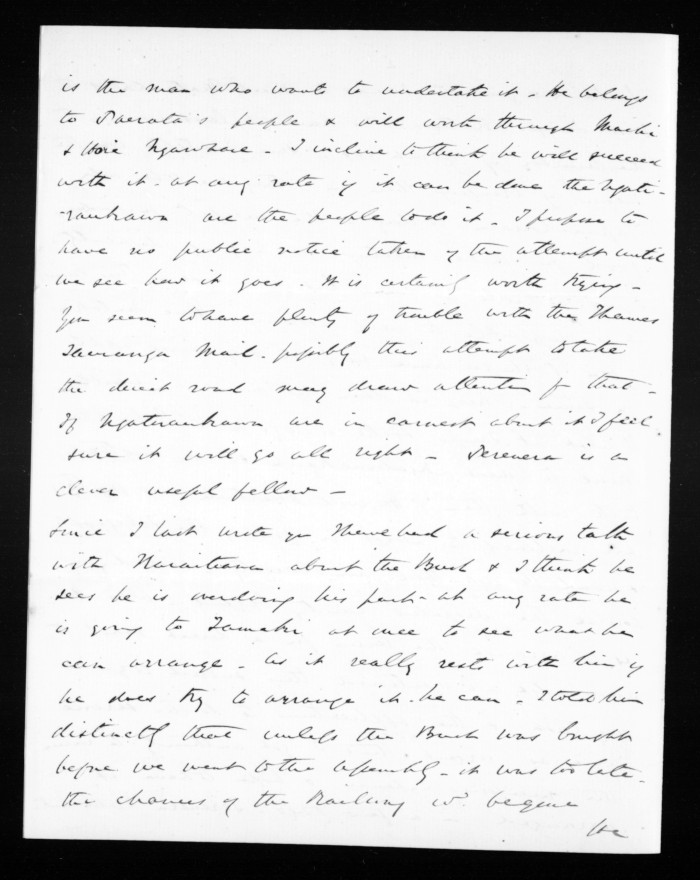 is the man who wants to undertake it - He belongs
to Paerata's people & will work through Maihi
& Hoie Ngawhare - I incline to think he will succeed
with it - at any rate if it can be done the Ngati-
-raukawa are the people to do it - I propose to
have no public notice taken of the attempt until
we see how it goes. It is certainly worth trying -
You seem to have plenty of trouble with the Thames
Tauranga Mail - possibly this attempt to take
the direct road may draw attention fr that -
If Ngatiraukawa are in earnest about it I feel
sure it will go all right - is a
clever useful fellow -
Since I last wrote you I have had a serious talk
with Karaitiana about the Bush & I think he
sees he is overdoing his part - at any rate he
is going to Tamaki at once to see what he
can arrange - As it really rests with him if
he does try to arrange it - he can - I told him
distinctly that unless the Bush was bought
before we went to the Assembly - it was too late -
the chances of the Railway wd. be gone
He